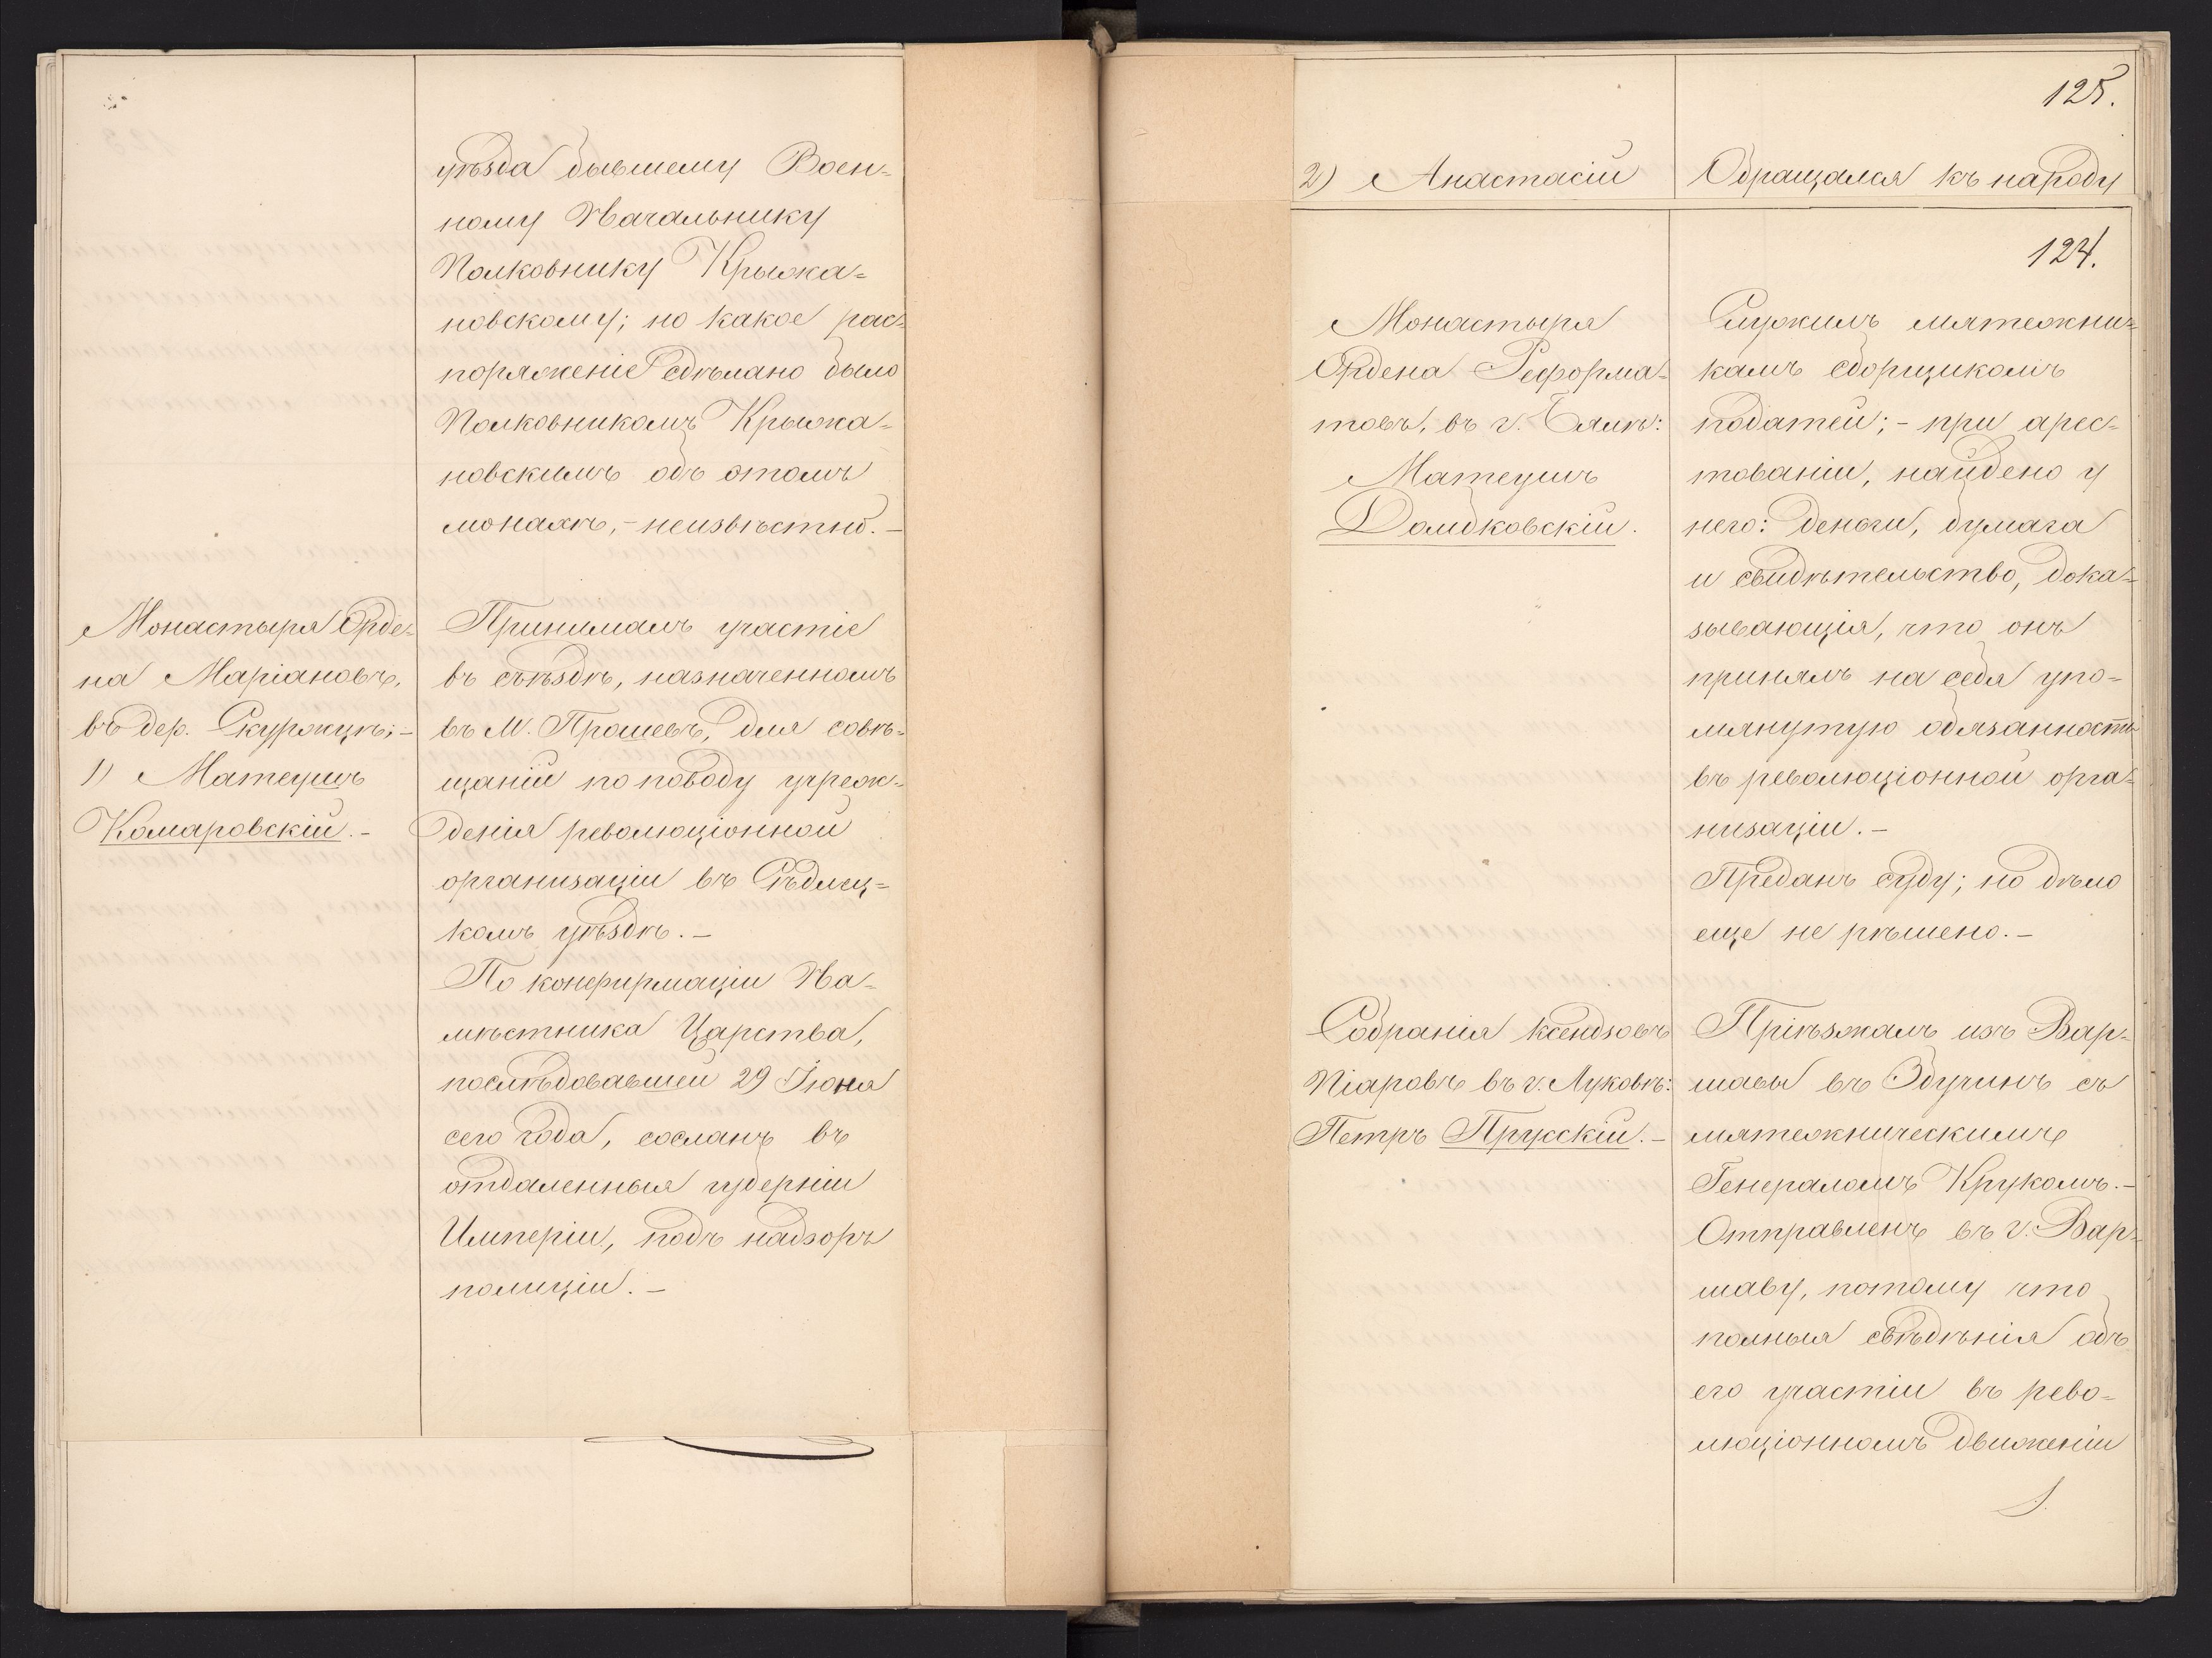 уѣзда бывшему Воен-
ному Начальнику
Полковнику Крыжа-
новскому; но какое рас-
поряженіе сдѣлано было
Полковникомъ Крыжа-
новскимъ объ этомъ
монахѣ,- неизвѣстно.-
Монастыря Орде-
на Маріановъ,
въ дер. Скуржецѣ;-
1) Матеушъ
Комаровскій.-
Принималъ участіе
въ съѣздѣ, назначенномъ
въ М. Прошевѣ, для совѣ-
щанія по поводу учреж-
денія революціонной
организаціи въ Сѣдлец-
комъ уѣздѣ.-
По конфирмаціи На-
мѣстника Царства,
послѣдовавшей 29 Іюня
сего года, сосланъ въ
отдаленныя губерніи
Имперіи, подъ надзоръ
полиціи.-
125.
2) Анастасій
Обращался къ народу
124.
Монастыря
Ордена Реформа-
товъ, въ г. Бялѣ:
Матеушъ
Домбковскій.
Служилъ мятежни-
камъ сборщикомъ
податей;- при арес-
тованіи, найдено у
него: деньги, бумага
и свидѣтельство, дока-
зывающія, что онъ
принялъ на себя упо-
мянутую обязанность
въ революціонной орга-
низаціи.-
Преданъ суду; но дѣло
еще не рѣшено.-
Собранія ксендзовъ
Піаровъ въ г. Луковѣ:
Петръ Прусскій.-
Пріѣзжалъ изъ Вар-
шавы въ Збучинъ съ
мятежническимъ
Генераломъ Крукомъ.-
Отправленъ въ г. Вар-
шаву, потому что
полныя свѣдѣнія объ
его участіи въ рево-
люціонномъ движеніи